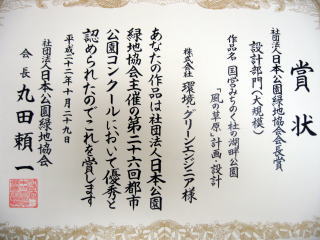 賞状
社団法人日本公園緑地協会会長賞
設計部門(大規模)
作品名 国営みちのく杜の湖畔公園
「風の草原」計画・設計
株式会社 環境・グリーンエンジニア様
あなたの作品は社団法人日本公園
緑地協会主催の第二十六回都市
公園コンクールにおいて優秀と
認められたのでこれを賞します
平成二十二年十月二十九日
社団法人日本公園緑地協会
会長 丸田頼一